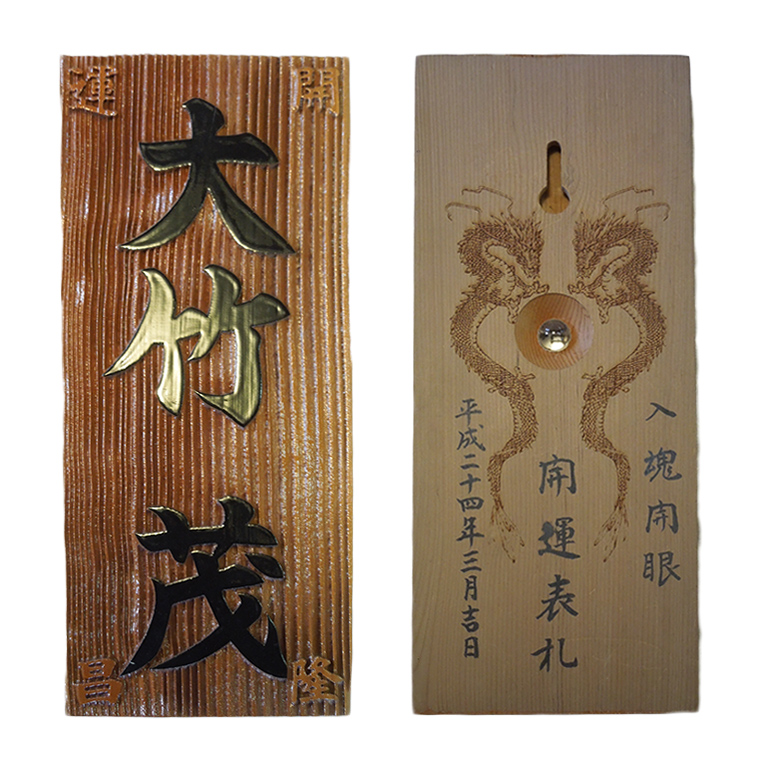 開運
大竹 茂
隆昌
入魂開眼
開運表札
平成二十四年三月吉日